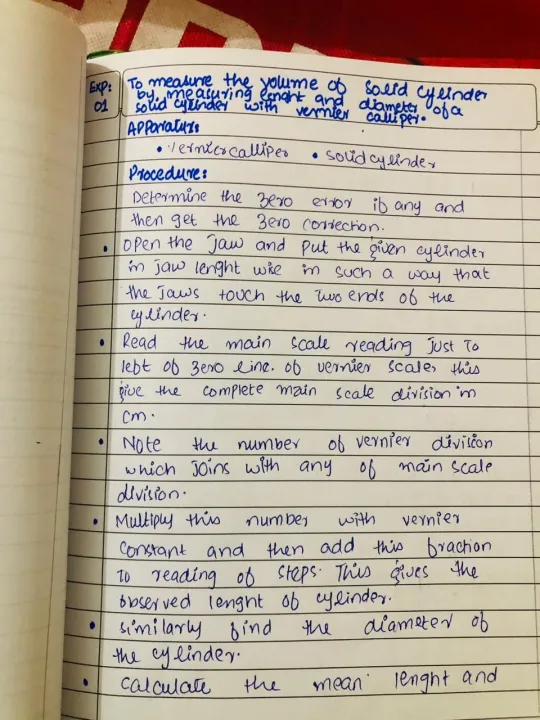 Exp:
01
To measure the volume of solid cylinder
by measuring lenght and diameter of a
solid cylinder with vernier calliper.
Apparatus:
• Verniercalliper • solid cylinder
Procedure:
Determine the zero error if any and
then get the zero correction.
• Open the jaw and put the given cylinder
in jaw lenght wise in such a way that
the jaws touch the two ends of the
cylinder.
• Read the main scale reading just to
left of zero line. of vernier scale, this
give the complete main scale division in
cm.
• Note the number of vernier division
which joins with any of main scale
division.
• Multiply this number with vernier
constant and then add this fraction
to reading of steps. This gives the
observed lenght of cylinder.
• similarly find the diameter of
the cylinder.
• calculate the mean lenght and